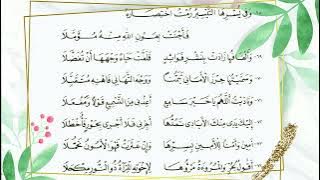 ٦٨- وَفِي يُسْرِهَا التَّيْسِيرُ رُمْتُ اخْتِصَارَهُ
فَأَجْنَتْ بِعَوْنِ اللهِ مِنْهُ مُؤَمَّلَا
٦٩- وَأَلْفَافُهَا زَادَتْ بِنَشْرِ فَوَائِدٍ فَلَفَّتْ حَيَاءً وَجْهَهَا أَنْ تُفَضَّلَا
٧٠- وَسَمَّيْتُهَا حِرْزَ الْأَمَانِي تَيَمُّنًا وَوَجْهَ التَّهَانِي فَاهْنِهِ مُتَقَبِّلَا
٧١- وَنَادَيْتُ أَللَّهُمَّ يَا خَيْرَ سَامِعٍ أَعِذْنِي مِنَ التَّسْمِيعِ قَوْلًا وَمِفْعَلَا
٧٢- إِلَيْكَ يَدِي مِنْكَ الْأَيَادِي تَمُدُّهَا أَجِرْنِي فَلَا أَجْرِي بِجَوْرٍ فَأَخْطَلَا
٧٣- أَمِينَ وَأَمْنًا لِلْأَمِينِ بِسِرِّهَا وَإِنْ عَثَرَتْ فَهْوَ الْأَمُونُ تَحَمُّلَا
٧٤- أَقُولُ لِحُرٍّ وَالْمُرُوءَةُ مَرْؤُهَا لِإِخْوَتِهِ الْمِرْآةُ ذُو النُّورِ مِكْحَلَا